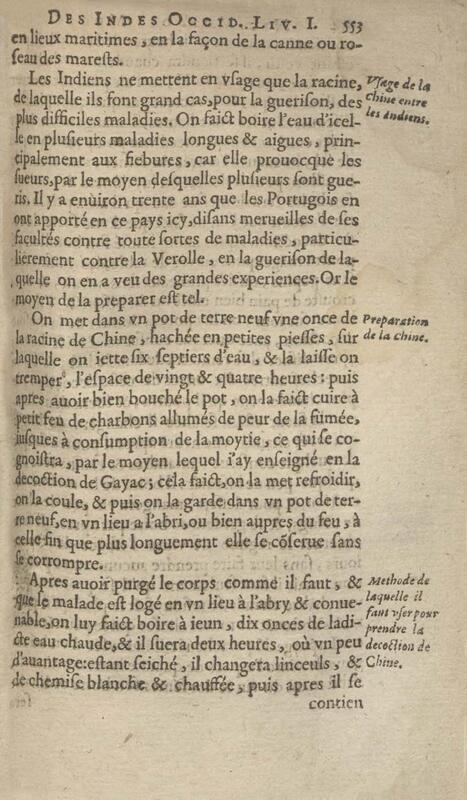 DES INDES OCCID. LIV. I. 553
en lieux maritimes, en la façon de la canne ou ro-
ſeau des mareſts.
Les Indiens ne mettent en vſage que la racine,
de laquelle ils font grand cas, pour la gueriſon, des
plus difficiles maladies. On faict boire l'eau d'icel-
le en pluſieurs maladies longues & aigues, prin-
cipalement aux fiebures, car elle prouocque les
ſueurs, par le moyen deſquelles pluſieurs ſont gue-
ris. Il y a enuiron trente ans que les Portugois en
ont apporté en ce pays icy, diſans merueilles de ſes
facultés contre toute ſortes de maladies, particu-
lierement contre la Verolle, en la gueriſon de la-
quelle on en a veu des grandes experiences. Or le
moyen de la preparer eſt tel.
On met dans vn pot de terre neuf vne once de
la racine de Chine, hachée en petites pieſſes, ſur
laquelle on iette ſix ſeptiers d'eau, & la laiſſe on
tremper, l'eſpace de vingt & quatre heures: puis
apres auoir bien bouché le pot, on la faict cuire à
petit feu de charbons allumés de peur de la fumée,
iuſques à conſumption de la moytie, ce qui ſe co-
gnoiſtra, par le moyen lequel i'ay enſeigné en la
decoction de Gayac; cela faict, on la met refroidir,
on la coule, & puis on la garde dans vn pot de ter-
re neuf, en vn lieu a l'abri, ou bien aupres du feu, à
celle fin que plus longuement elle ſe cõſerue ſans
ſe corrompre.
Apres auoir purgé le corps comme il faut, &
que le malade eſt logé en vn lieu à l'abry & conue-
nable, on luy faict boire à ieun, dix onces de ladi-
cte eau chaude, & il ſuera deux heures, où vn peu
d'auantage: eſtant ſeiché, il changera linceuls, &
de chemiſe blanche & chauffée, puis apres il ſe
contien
Vſage de la
Chine entre
les Indiens.
Preparation
de la chine.
Methode de
laquelle il
faut vſer pour
prendre la
decoction de
Chine.